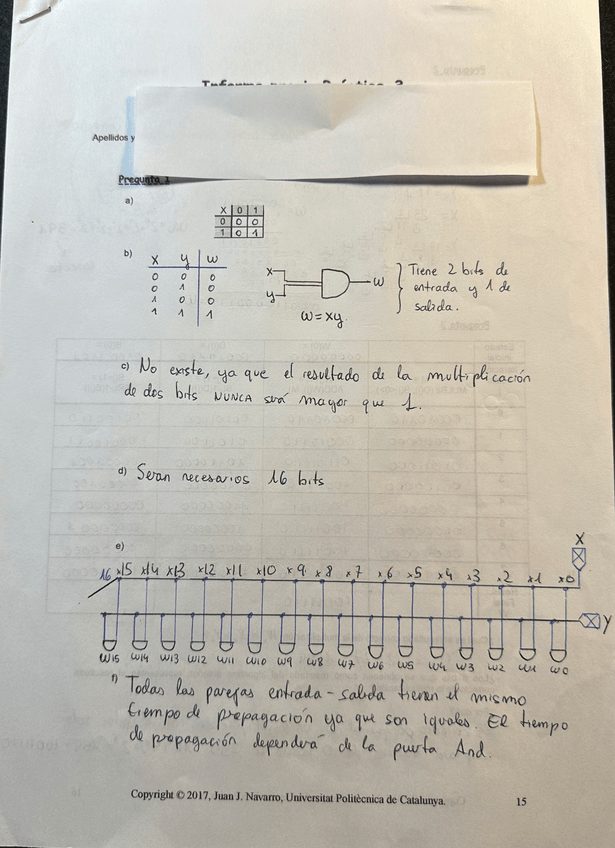 Apellidos y
Pregunta 1
a)
X 0 1
0 0 0
1 0 1
b)
x y w
0 0 0
0 1 0
1 0 0
1 1 1
x
y
w
w = xy
Tiene 2 bits de
entrada y 1 de
salida.
c) No existe, ya que el resultado de la multiplicación
de dos bits NUNCA será mayor que 1.
d) Seran necesarios 16 bits
e)
X
16 x15 x14 x13 x12 x11 x10 x9 x8 x7 x6 x5 x4 x3 x2 x1 x0
Y
w15 w14 w13 w12 w11 w10 w9 w8 w7 w6 w5 w4 w3 w2 w1 w0
f) Todas las parejas entrada-salida tienen el mismo
tiempo de propagación ya que son iguales. El tiempo
de propagación dependerá de la puerta And.
Copyright © 2017, Juan J. Navarro, Universitat Politècnica de Catalunya.
15